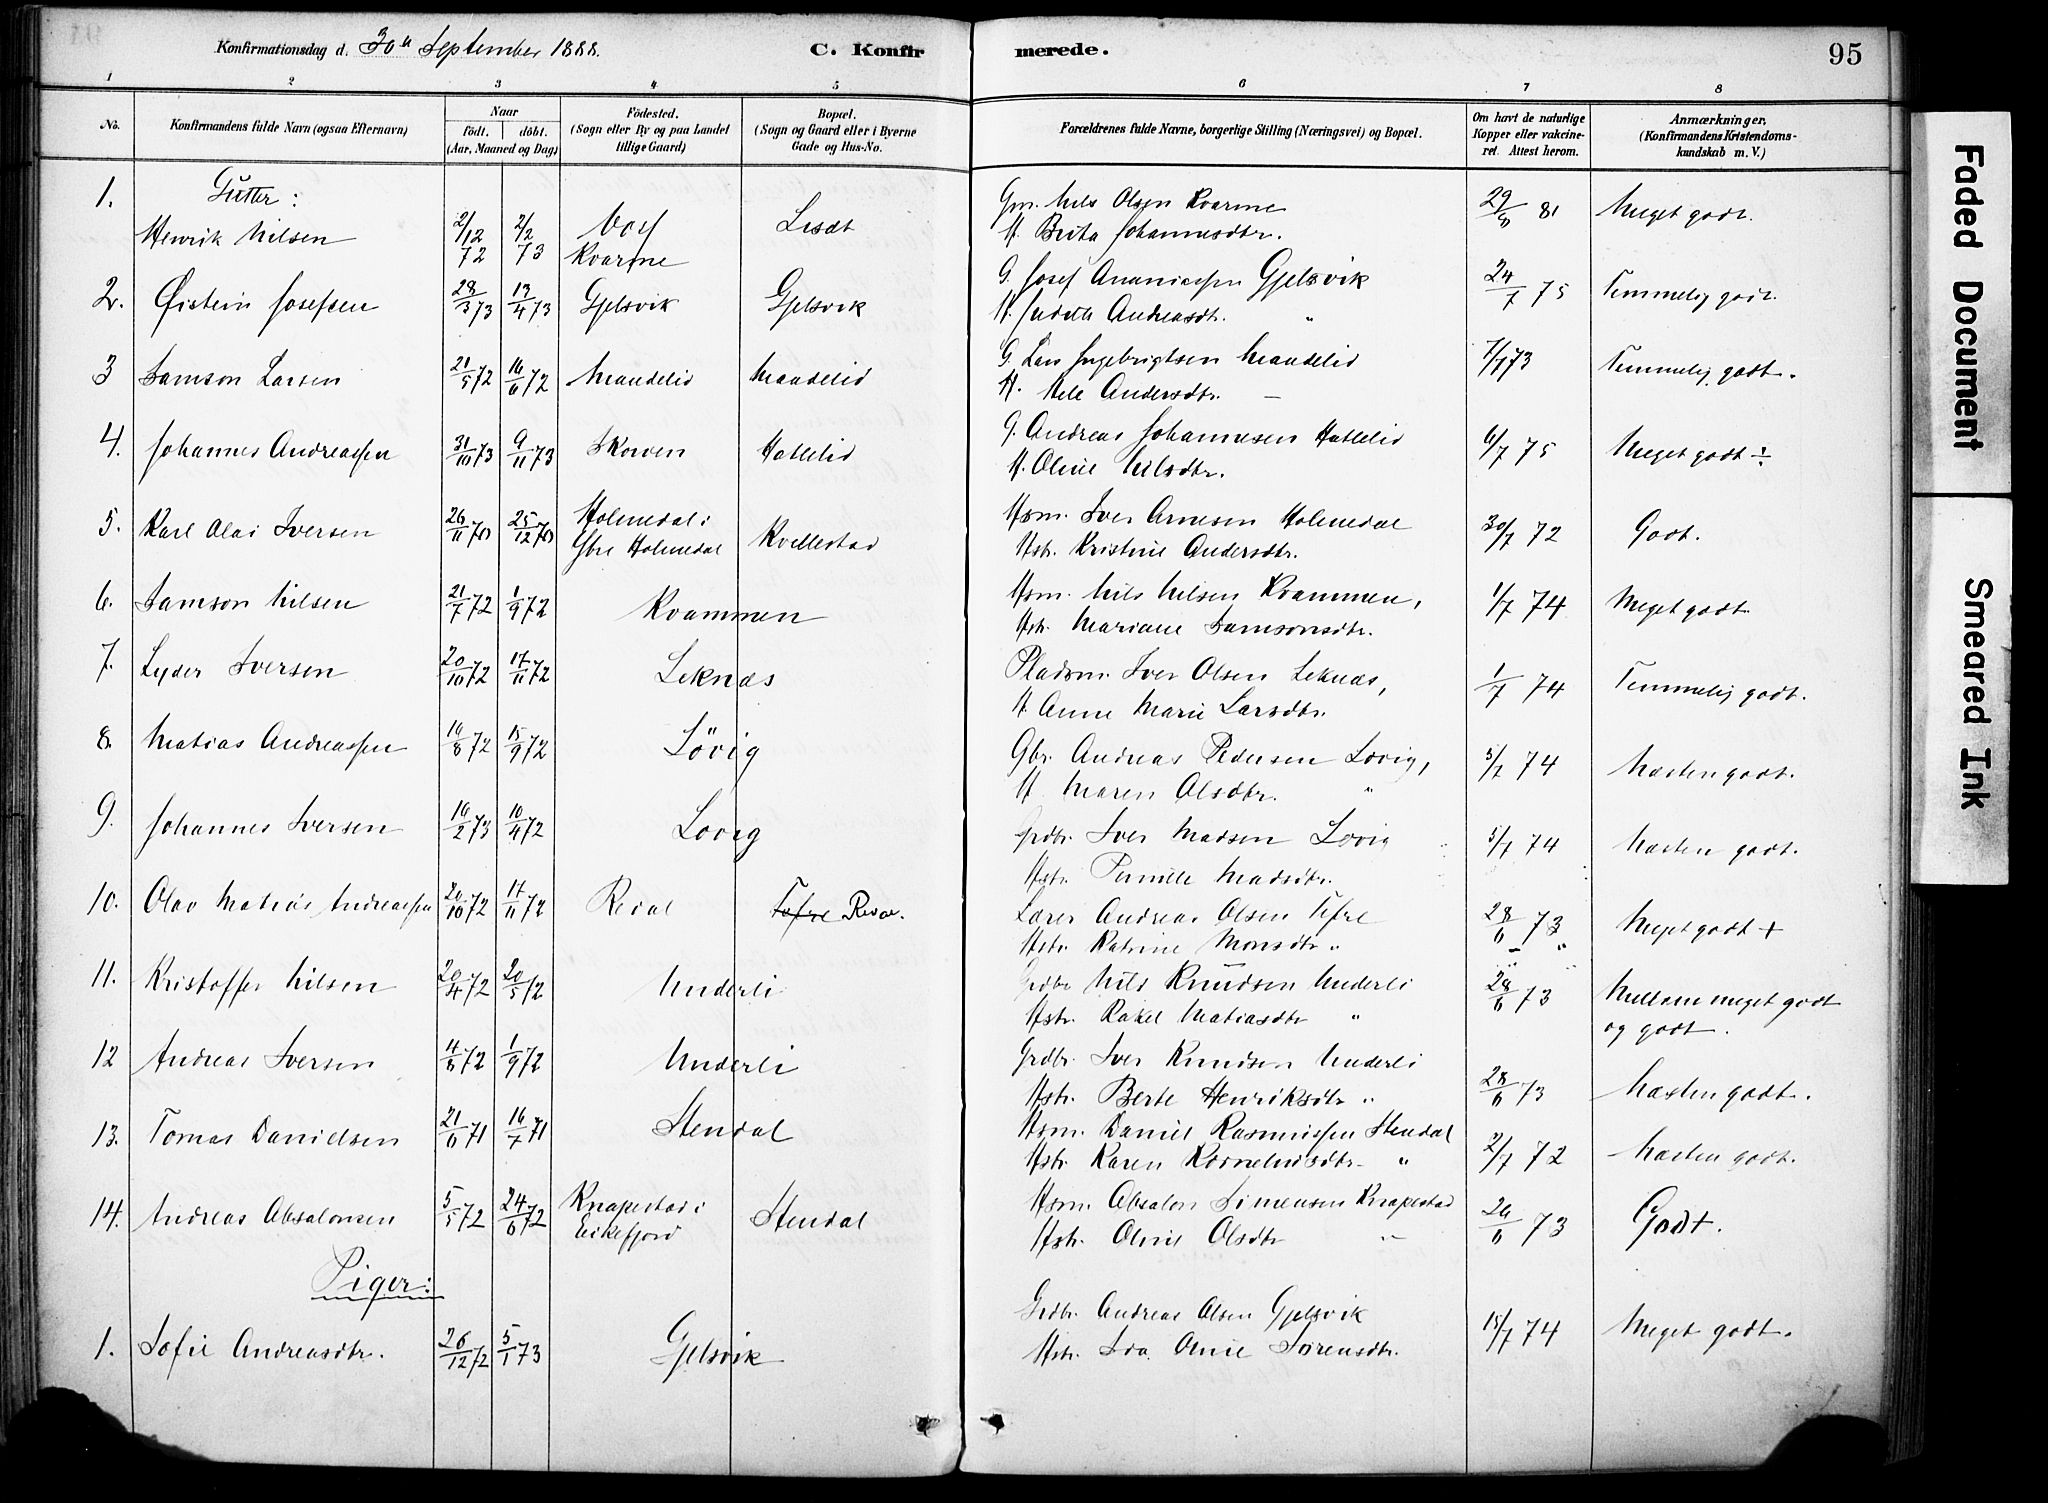 Konfirmationsdag d. 30te September 1888. C. Konfirmerede. 95
1 2 3 4 5 6 7 8
No. Konfirmandens fulde Navn (ogsaa Efternavn) Naar födt. döbt. (Aar, Maaned og Dag) Födested. (Sogn eller By og paa Landet tillige Gaard) Bopæl. (Sogn og Gaard eller i Byerne Gade og Hus-No. Forældrenes fulde Navne, borgerlige Stilling (Næringsvei) og Bopæl. Om havt de naturlige Kopper eller vakcineret. Attest herom. Anmærkninger, (Konfirmandens Kristendomskundskab m. V.)
Gutter:
1. Henrik Nilsen 2/12 72 2/2 73 Vos Kvarme Gm. Nils Olsen Kvarme 81 Meget godt.
H. Brita Johannesdtr.
2. Øistein Josefsen 28/3 73 13/4 73 Gjelsvik Gjelsvik G. Josef Ananiassen Gjelsvik 24/7 75 Temmelig godt.
H. Judith Andreasdt. "
3 Samson Larsen 21/5 72 16/6 72 Maudelid Maudelid G. Lars Ingebrigtsen Maudelid 73 Temmelig godt.
H. Nele Andersdtr. —
4. Johannes Andreassen 31/10 73 9/11 73 Skorven Hatlelid G. Andreas Johannesen Hatlelid 6/7 75 Meget godt ÷
H. Oline Nilsdtr.
5. Karl Olai Iversen 26/11 25/12 Holmedal i Ytre Holmedal Kvellestad Hsm. Iver Arnesen Holmedal 30/7 72 Godt.
Hstr. Kristine Andersdtr.
6. Samson Nilsen 21/7 72 1/9 72 Kvammen Hsm. Nils Nilsen Kvammen, 1/7 74 Meget godt
Hstr. Mariane Samsonsdtr.
7. Lyder Iversen 20/10 72 17/11 72 Leknæs Pladsm. Iver Olsen Leknæs, 1/7 74 Temmelig godt.
H. Anne Marie Larsdtr.
8. Matias Andreassen 72 15/9 72 Lövig Gbr. Andreas Pedersen Lövig, 5/7 74 Næsten godt.
H. Maren Olsdtr. "
9. Johannes Iversen 16/2 73 10/4 72 Lovig Grdbr. Iver Madsen Lovig 5/7 74 Næsten godt.
Hstr. Pernille Madsdtr.
10. Olav Matias Andreassen 20/10 72 17/11 72 Redal Redal. Lærer Andreas Olsen Tefre 28/6 73 Meget godt +
Hstr. Katrine Monsdtr "
11. Kristoffer Nilsen 20/4 72 20/5 72 Underli Grdbr Nils Knudsen Underli 28/6 73 Mellem meget godt
Hstr. Rakel Matiasdtr " og godt.
12 Andreas Iversen 4/8 72 1/9 72 Underli Grdbr. Iver Knudsen Underli 28/6 73 Næsten godt.
Hstr. Berte Henriksdtr "
13. Tomas Danielsen 21/6 71 16/7 71 Stendal Hsm. Daniel Rasmussen Stendal 2/7 72 Næsten godt.
Hstr. Karen Korneliusdtr. "
14. Andreas Absalonsen 5/5 72 24/6 72 Knapestad i Eikefjord Stendal Hsm. Absalon Simensen Knapestad 26/6 73 Godt.
Hstr. Oline Olsdtr "
Piger:
1. Sofie Andreasdtr. 26/12 72 5/1 73 Gjelsvik Grdbr. Andreas Olsen Gjelsvik 15/7 74 Meget godt.
Hstr. Ida Oline Sörensdtr.
Faded Document
Smeared Ink